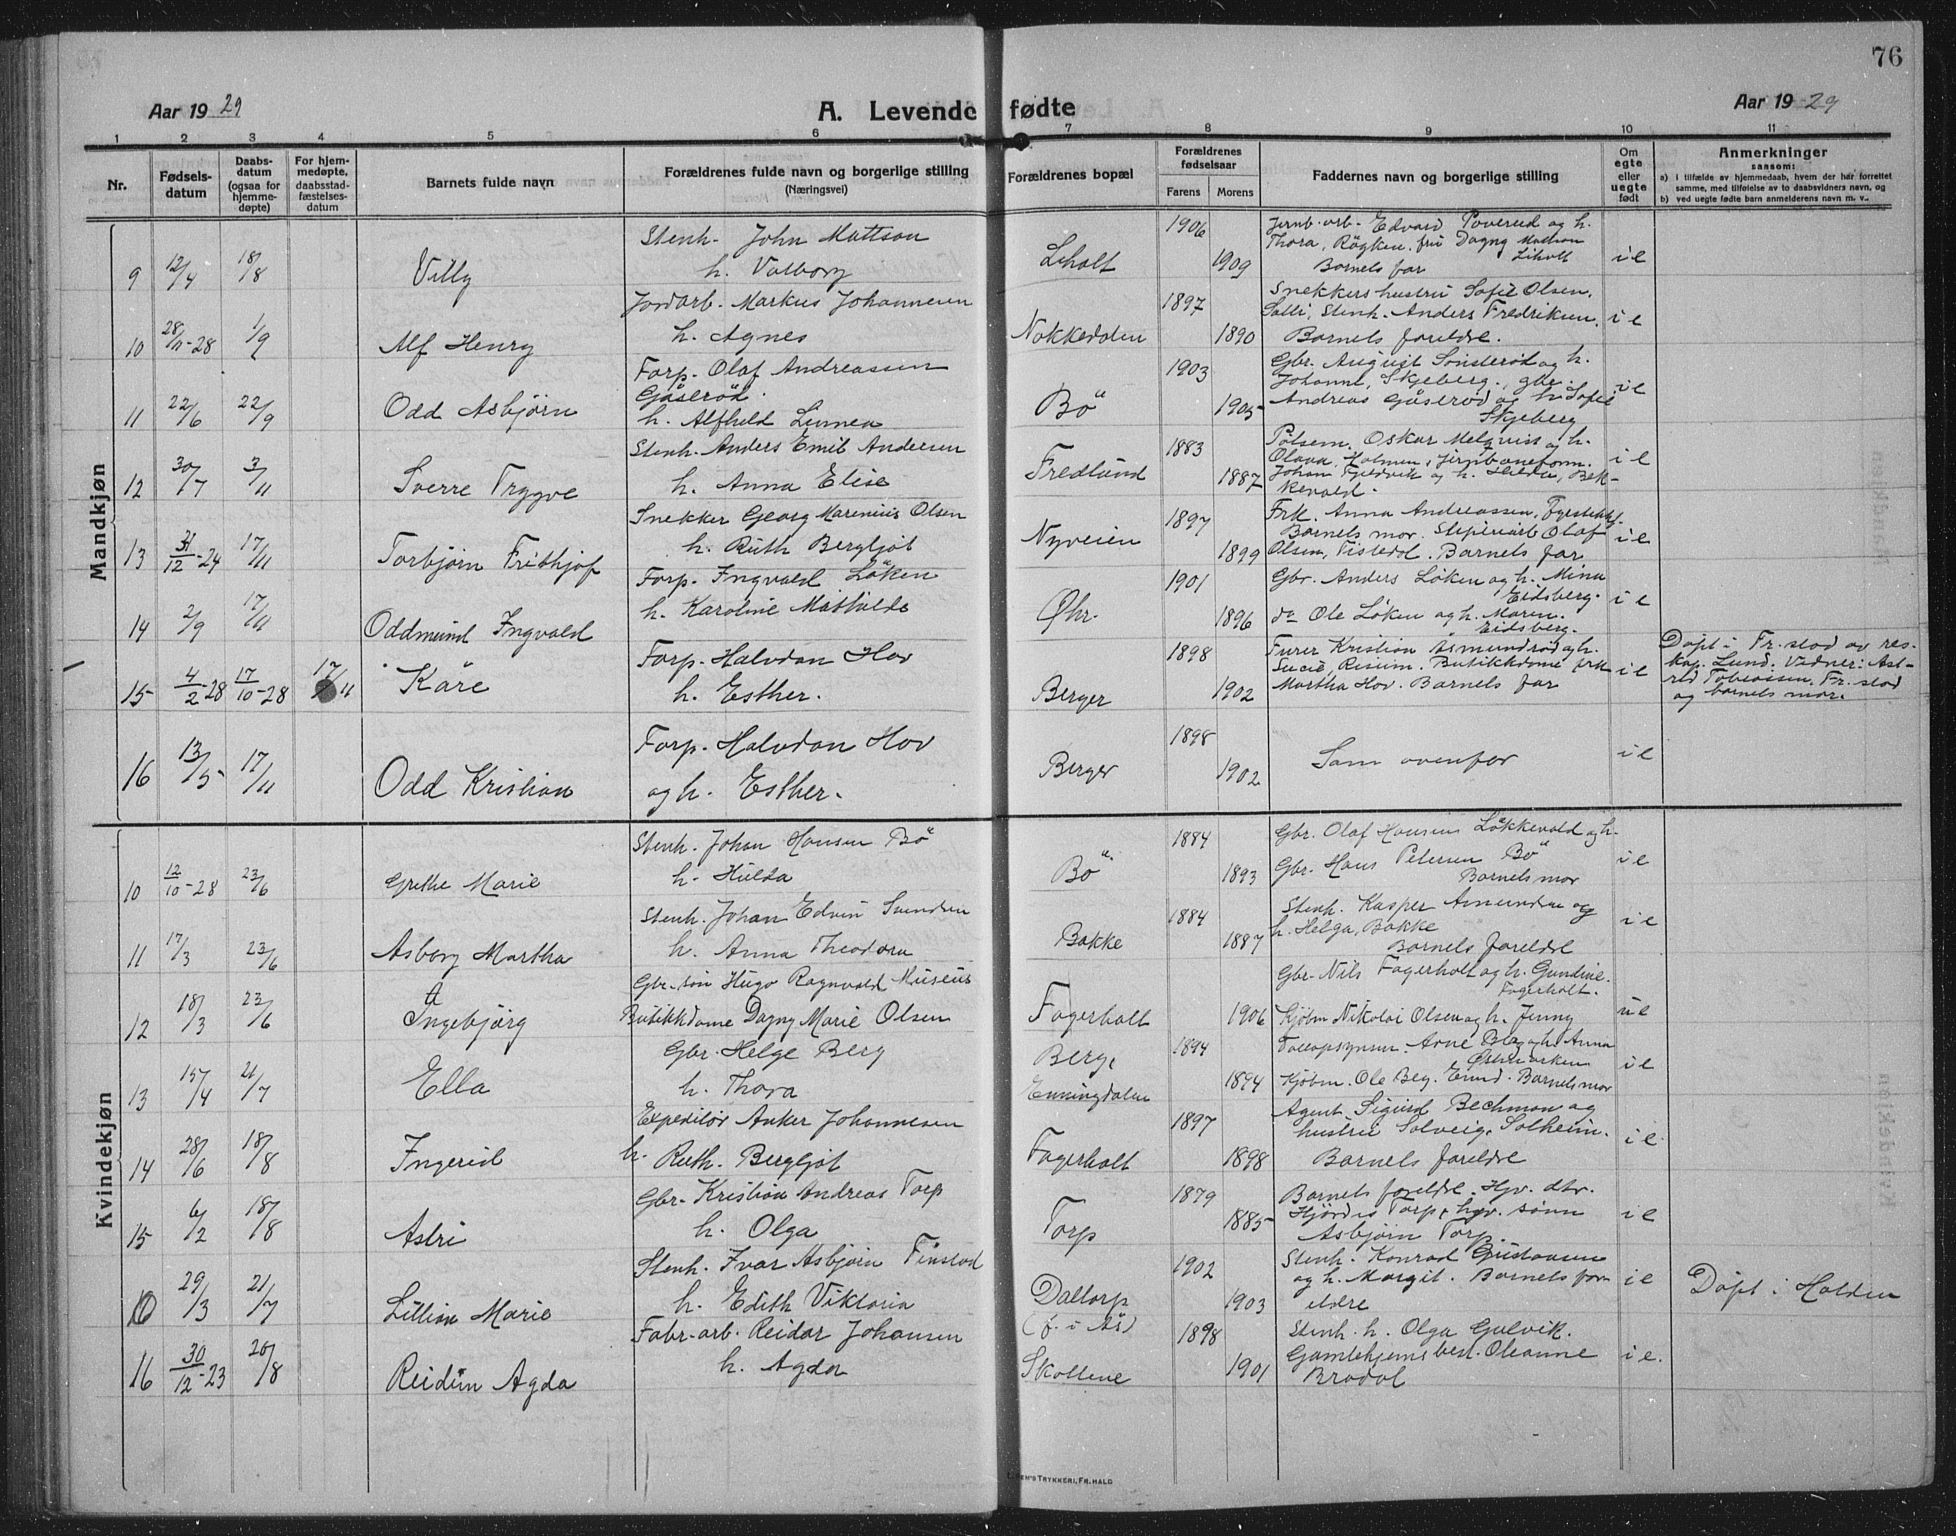 76
Aar 1929
A. Levende fødte
Aar 1929
1 2 3 4 5 6 7 8 9 10 11
Nr.
Fødsels-datum
Daabs-datum (ogsaa for hjemme-døpte)
For hjem-medøpte, daabsstad-fæstelses-datum
Barnets fulde navn
Forældrenes fulde navn og borgerlige stilling (Næringsvei)
Forældrenes bopæl
Forældrenes fødselsaar
Farens Morens
Faddernes navn og borgerlige stilling
Om egte eller uegte født
Anmerkninger
sansom:
a) i tilfælde av hjemmedaab, hvem der har forrettet samme, med tilføielse av to daabsvidners navn, og
b) ved uegte fødte barn anmelderens navn m. v..
Mandkjøn
9 12/4 18/8 Villy
Stenh. John Mattson
h. Valborg
Liholt 1906 1909
Jernb.arb. Edvard Poverud og h.
Thora, Røgken. frü Dagny Mattson
Liholt
Barnets far
i e
10 28/11-28 1/9 Alf Henry
Jordarb. Markus Johannesen
h. Agnes
Nokkedalen 1897 1890
Snekkershustru Sofie Olsen,
Solli, Stenh. Anders Fredriksen,
Barnets foreldre.
i e
11 22/6 22/9 Odd Asbjörn
Forp. Olaf Andreassen
Gåseröd.
h. Alfhild Linnea
Bö 1903 1905
Gbr. August Sönsteröd og h.
Johanne, Skjeberg., gbr.
Andreas Gåseröd og h. Sofie
Skjeberg
i e
12 30/7 3/11 Sverre Trygve
Stenh. Anders Emil Andersen
h. Anna Elise
Fredlund 1883 1887
Pölsem. Oskar Melqvist og h.
Olava, Holmen, jernbaneform.
Johan Tjeldvik og h. Hilda, Bek-
kevold.
i e
13 31/12-24 17/11 Torbjörn Frithjof
Snekker Georg Marenius Olsen
h. Ruth Bergljot
Nyveien 1897 1899
Frk. Anna Andreassen,
Barnets mor. Sliperiarb Olaf
Olsen, Tistedal. Barnets far
i e
14 2/9 17/11 Oddmund Ingvald
Forp. Ingvald Löken
h. Karoline Mathilde
Øhr. 1901 1896
Gbr. Anders Löken og h. Mina
Eidsberg.
do Ole Löken og h. Maren.
Eidsberg.
i e
15 4/2-28 17/10-28 17/11 Kåre
Forp. Halvdan Hov
h. Esther.
Berger 1898 1902
Furer Kristian Åsmundrød og h.
Lucie, Risum. Butikkdame frk
Martha Hov. Barnets far
i e
Døpt i Fr.stad av res-
kap. Lund. Vidner: Ast-
rid Tobiassen, Fr.stad
og barnets mor.
16 13/5 17/11 Odd Kristian
Forp. Halvdan Hov
og h. Esther.
Berger 1898 1902
Som ovenfor
i e
Kvindekjøn
10 12/10-28 23/6 Grethe Marie
Stenh. Johan Hansen Bö
h. Hulda
Bö 1884 1893
Gbr. Olaf Hansen Lökkevold og h.
Gbr. Hans Petersen Bö
Barnets mor
i e
11 17/3 23/6 Asborg Martha
Stenh. Johan Edvin Svendsen
h. Anna Theodora
Bakke 1884 1887
Stenh. Kasper Amundsen og
h. Helga, Bakke
Barnets foreldre
i e
12 18/3 23/6 Ingebjörg
Gbr-sön Hugo Ragnvald Museus
Butikkdame Dagny Marie Olsen
Fagerholt 1906
Gbr. Nils Fagerholt og h. Gundine.
Fagerholt.
Kjøbm Nikolai Olsen og h. Jenny
ue
13 15/4 21/7 Ella
Gbr. Helge Berg
h. Thora
Berg,
Enningdalen
1894 1894
Tollopsynsm. Arne Berg og h. Anna
Østmarken
Kjøbm. Ole Berg. Barnets mor
i e
14 28/6 18/8 Ingerid
Expeditör Anker Johannesen
h. Ruth. Bergljot
Fagerholt 1897 1898
Agent. Sigurd Bechman og
hustru Solveig, Solheim.
Barnets foreldre
i e
15 6/2 18/8 Astri
Gbr. Kristian Andreas Torp
h. Olga
Torp 1879 1885
Barnets foreldre. Hjv. dtr.
Hjördis Torp, hjv. sönn
Asbjörn Torp.
i e
29/3 21/7 Lillian Marie
Stenh. Ivar Asbjörn Finstad
h. Edith Viktoria
Daltorp
(f. i Ås)
1902 1903
Stenh. Konrad Gustavsen
og h. Margit. Barnets for
eldre
i e
Döpt i Halden
16 30/12-23 20/8 Reidun Agda
Fabr-arb. Reidar Johansen
h. Agda
Skollene 1898 1901
Stenh. h. Olga Golvik.
Gamlehjemsbest. Oleanne
Bradal
i e.
TRYKKERI, FR.HALD